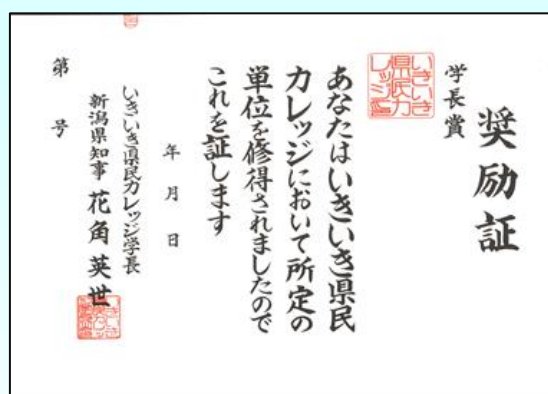 奨励証
学長賞
いきいき
県民カ
レッジ
あなたはいきいき県民
カレッジにおいて所定の
単位を修得されましたので
これを証します
年 月 日
いきいき県民カレッジ学長
新潟県知事 花角英世
第 号